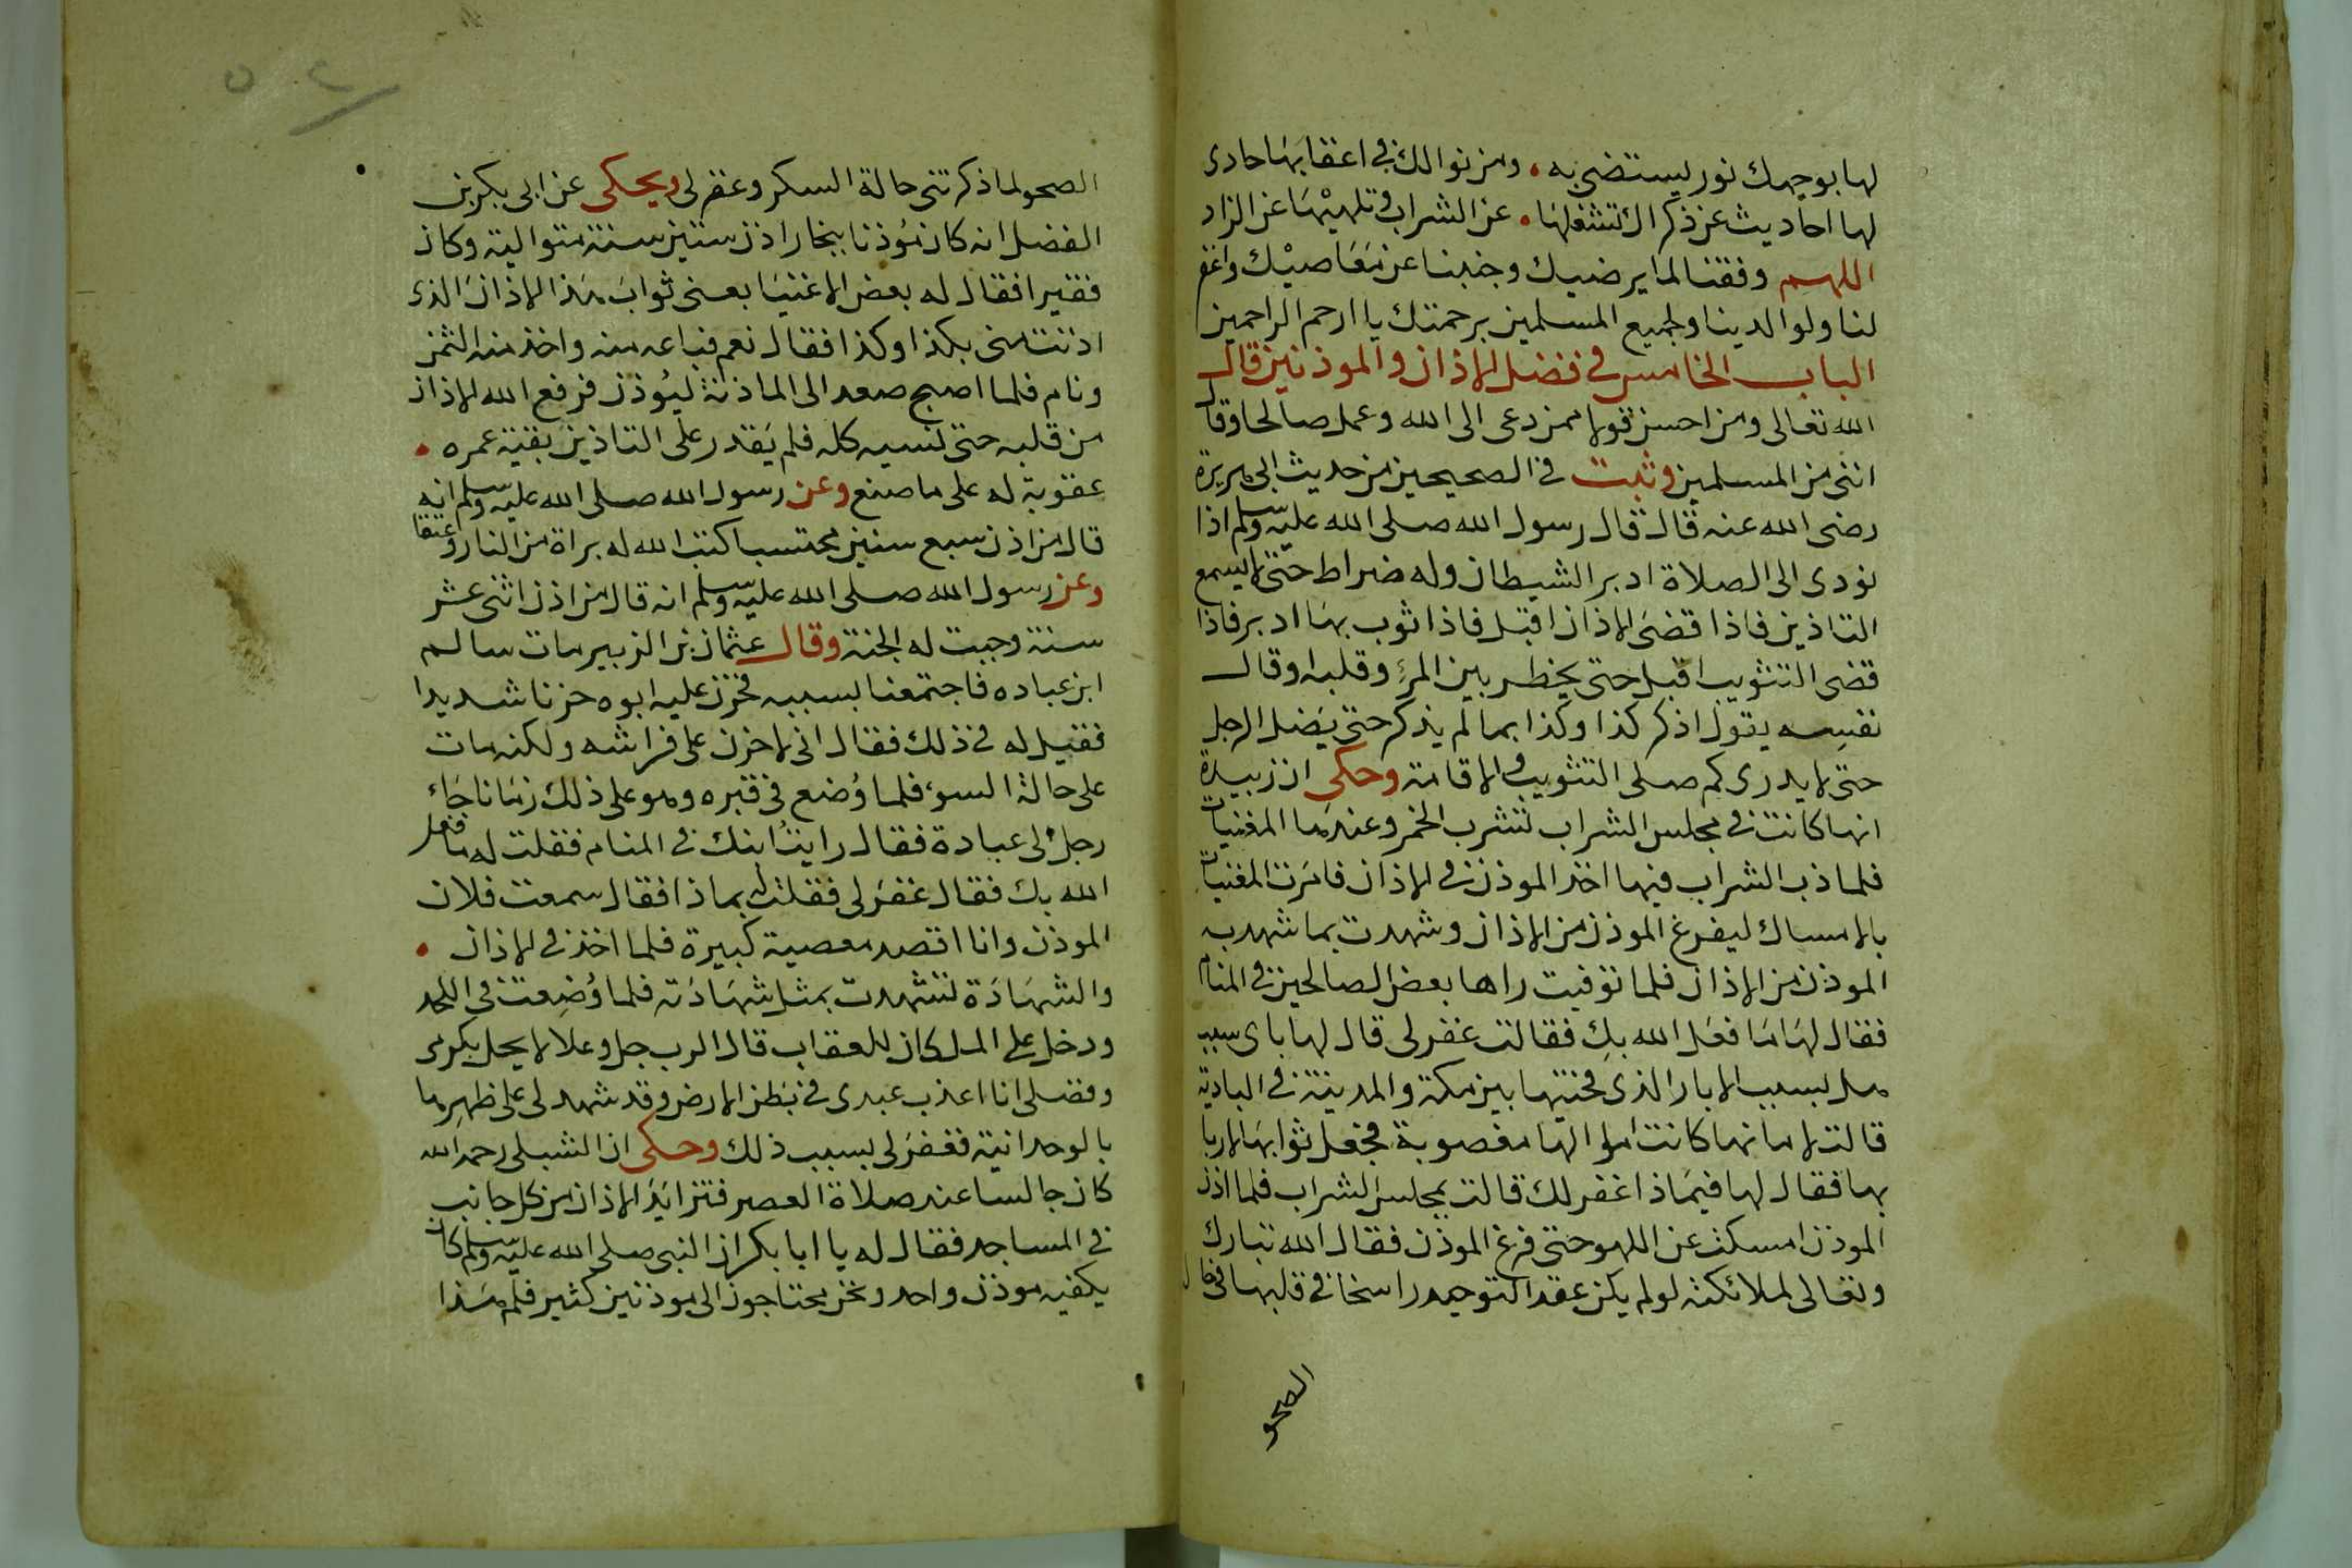 لها بوجهك نور يستضئ به • ومن نوالك في اعقابها حادى
لها احاديث عن ذكراك تشغلها • عن الشراب وتلهيها عن الزاد
اللهم وفقنا لما يرضيك وجنبنا عن معاصيك واغفر
لنا ولوالدينا ولجميع المسلمين برحمتك يا ارحم الراحمين
الباب الخامس في فضل الاذان والموذنين قال
الله تعالى ومن احسن قولا ممن دعى الى الله وعمل صالحا وقال
اننى من المسلمين وثبت في الصحيحين من حديث ابى هريرة
رضى الله عنه قال قال رسول الله صلى الله عليه وسلم اذا
نودى الى الصلاة ادبر الشيطان وله ضراط حتى لا يسمع
التاذين فاذا قضى الاذان اقبل فاذا ثوب بها ادبر فاذا
قضى التثويب اقبل حتى يخطر بين المرء وقلبه وقال
نفسه يقول اذكر كذا وكذا بما لم يذكر حتى يضل الرجل
حتى لا يدرى كم صلى التثويب والاقامة وحكى ان زبيدة
انها كانت في مجلس الشراب تشرب الخمر وعندها المغنيات
فلما ذب الشراب فيها اخذ الموذن في الاذان فامرت المغنيات
بالامساك ليفرغ الموذن من الاذان وشهدت بما شهد به
الموذن من الاذان فلما توفيت راها بعض الصالحين في المنام
فقال لها ما فعل الله بك فقالت غفر لى قال لها باى سبب
هل بسبب الابار الذى فحتيها بين مكة والمدينة في البادية
قالت لا انها كانت اموالها مغصوبة فجعل ثوابها لاربا
بها فقال لها فيماذا غفر لك قالت بمجلس الشراب فلما اذن
الموذن امسكت عن اللهو حتى فرغ الموذن فقال الله تبارك
وتعالى لملائكته لو لم يكن عقد التوحيد راسخا في قلبها في حال
الصحو
الصحو لما ذكرتنى حالة السكر وغفر لى ويحكى عن ابى بكر بن
الفضل انه كان مؤذنا ببخارا اذن ستين سنة متوالية وكان
فقيرا فقال له بعض الاغنيا بعنى ثواب هذا الاذان الذى
اذنت منى بكذا وكذا فقال نعم فباعه منه واخذ منه الثمن
ونام فلما اصبح صعد الى الماذنة ليؤذن فرفع الله الاذان
من قلبه حتى نسيه كله فلم يقدر على التاذين بقية عمره •
عقوبة له على ما صنع وعن رسول الله صلى الله عليه وسلم انه
قال من اذن سبع سنين محتسبا كتب الله له براة من النار وعتقا
وعن رسول الله صلى الله عليه وسلم انه قال من اذن اثنى عشر
سنة وجبت له الجنة وقال عثمان بن الزبير مات سالم
ابن عباده فاجتمعنا بسببه فحزن عليه ابوه حزنا شديدا
فقيل له في ذلك فقال انى لا احزن على فراشه ولكنه مات
على حالة السوء فلما وضع في قبره وهو على ذلك زمانا جاء
رجل الى عبادة فقال رايت ابنك في المنام فقلت له ما فعل
الله بك فقال غفر لى فقلت له بماذا فقال سمعت فلان
الموذن وانا اقصد معصية كبيرة فلما اخذ في الاذان •
والشهادة تشهدت بمثل شهادته فلما وضعت في اللحد
ودخل على الملكان للعقاب قال الرب جل وعلا لا يحل بكرمى
وفضلى انا اعذب عبدى في بطن الارض وقد شهد لى على ظهرها
بالوحدانية فغفر لى بسبب ذلك وحكى ان الشبلى رحمه الله
كان جالسا عند صلاة العصر فتزايد الاذان من كل جانب
في المساجد فقال له يا ابا بكر ان النبى صلى الله عليه وسلم كان
يكفيه موذن واحد ونحن محتاجون الى موذنين كثير فلم هذا